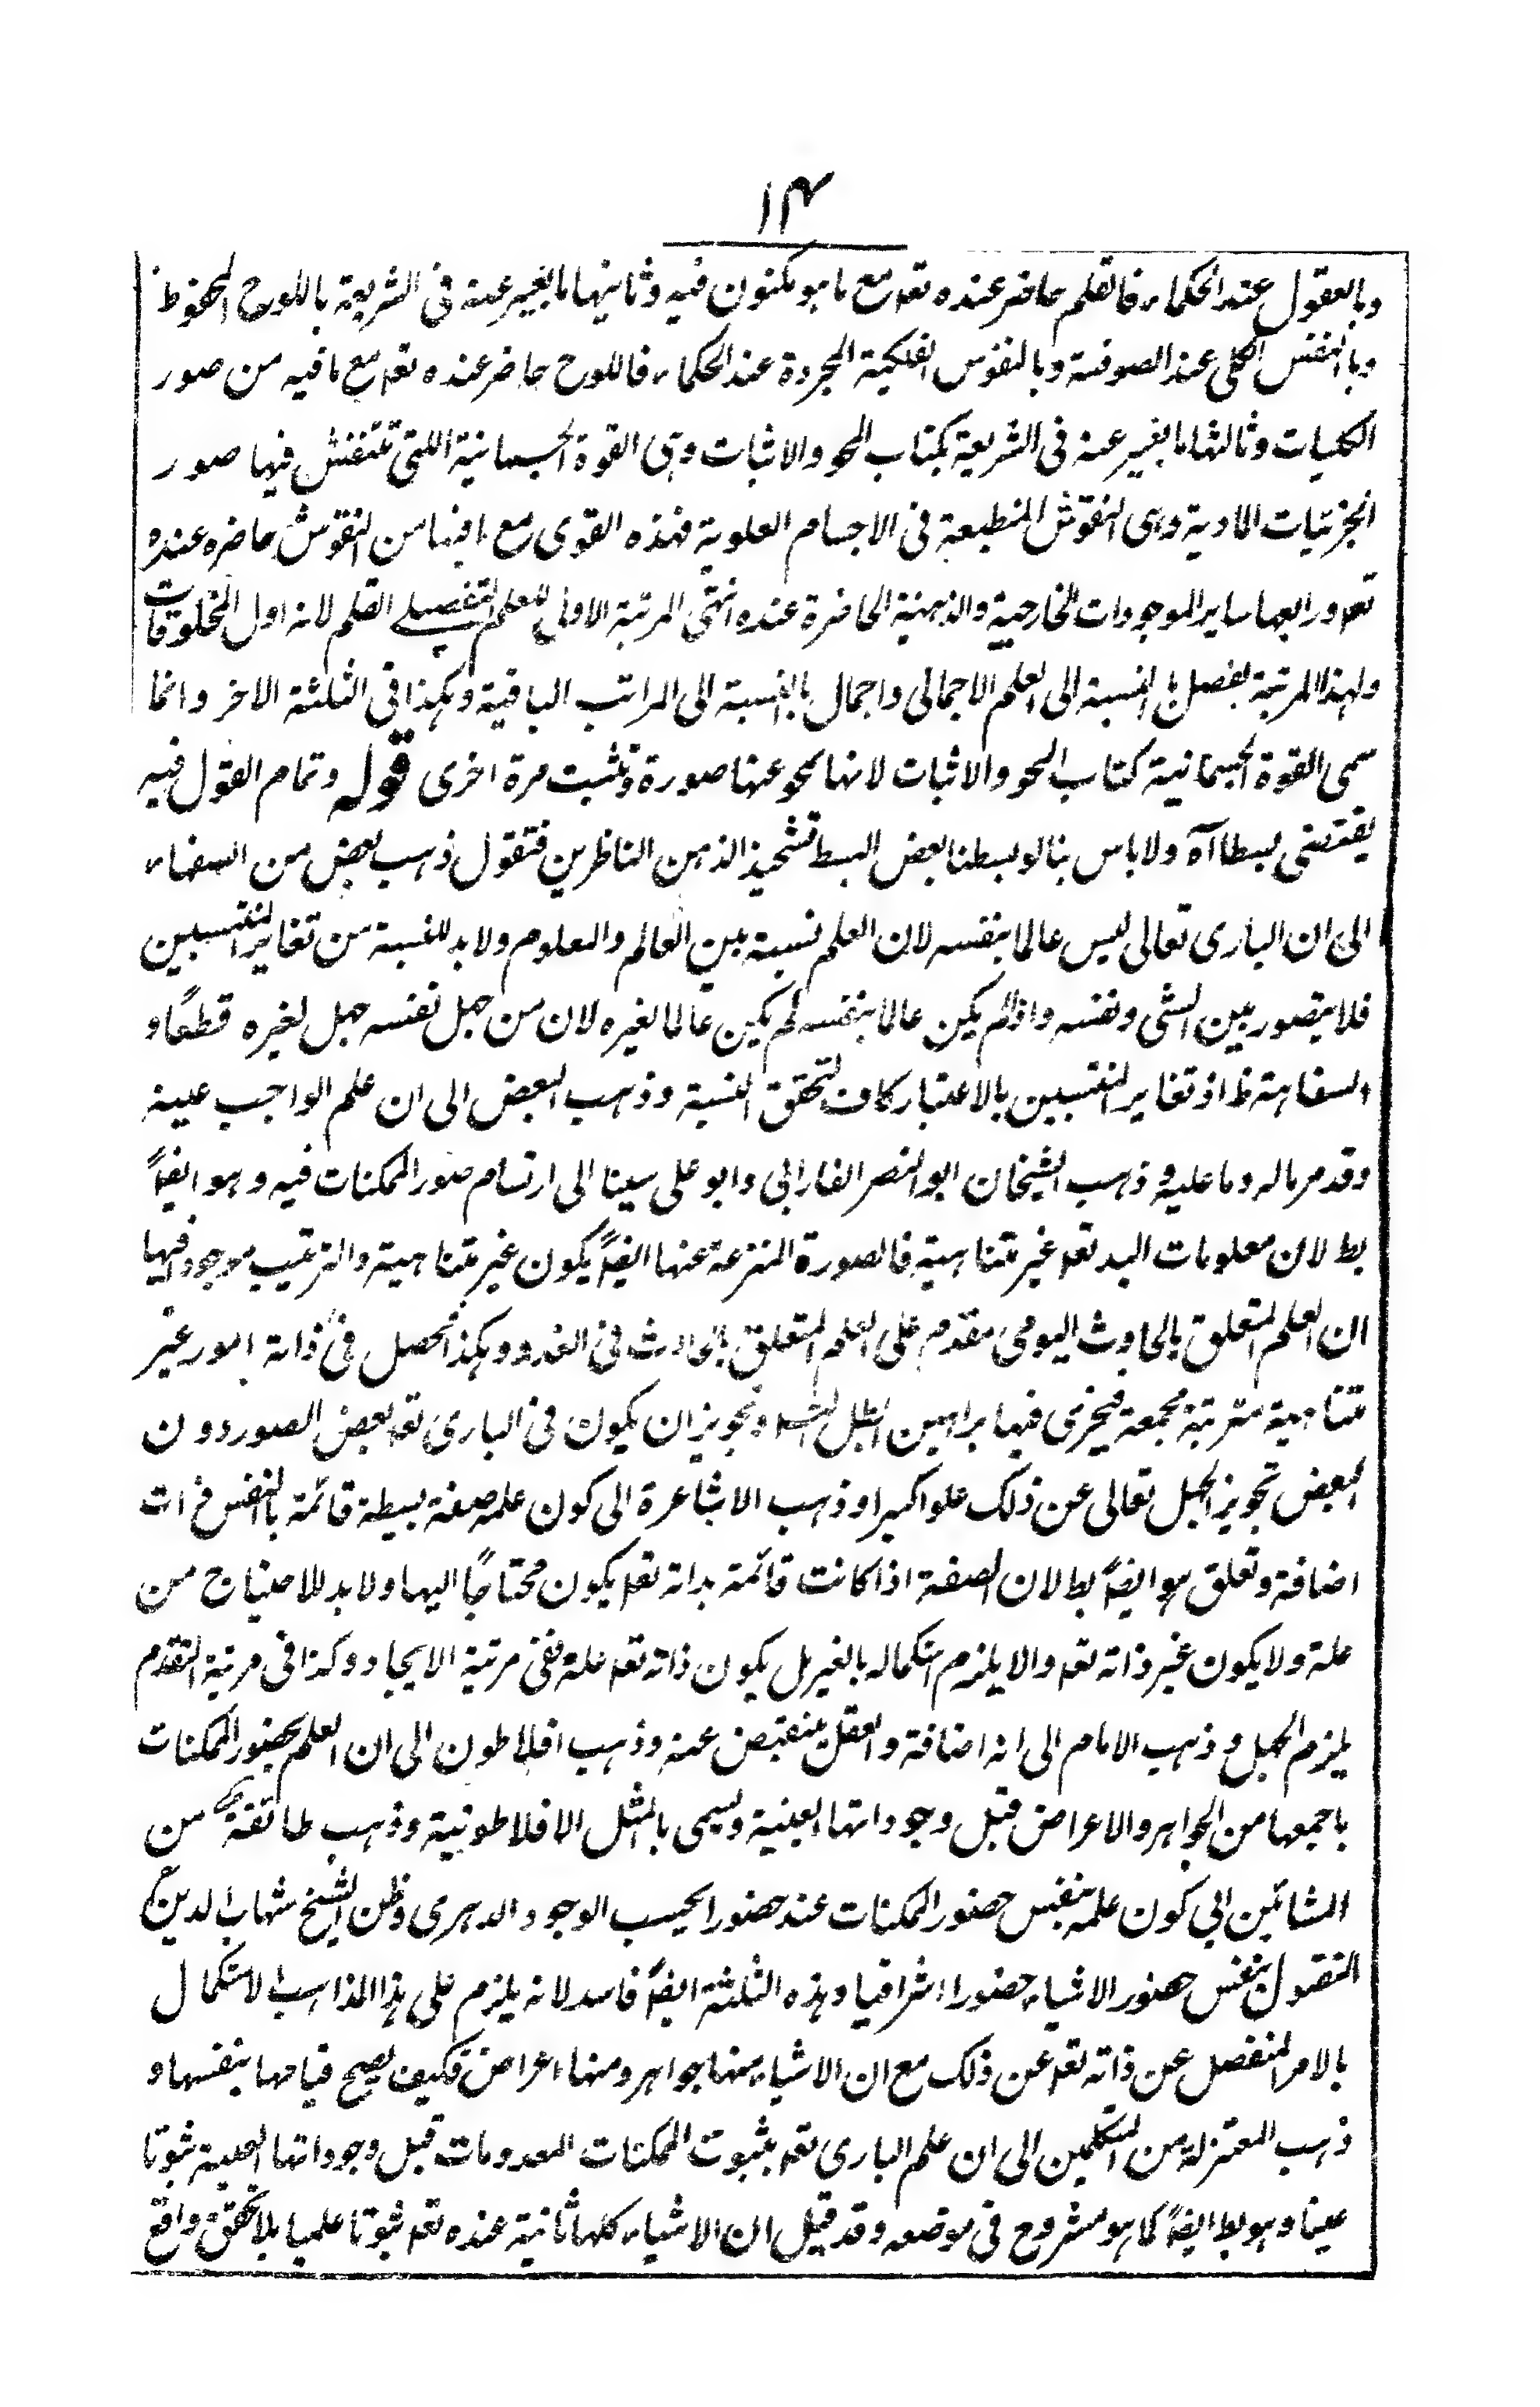 ۱۴
وبالعقول عند الحکماء فالقلم حاضر عنده تعہ مع ما ہو مکنون فیه وثانیہا ما یعبر عنه فی الشریعة باللوح المحفوظ
وبالنفس الکلی عند الصوفیة وبالنفوس الفلکیة المجردة عند الحکماء فاللوح حاضر عنده تعہ مع ما فیه من صور
الکلیات وثالثہا ما یعبر عنه فی الشریعة بکتاب المحو والاثبات وہی القوة الجسمانیة اللتی تنتقش فیہا صور
الجزئیات المادیة وہی النقوش المنطبعة فی الاجسام العلویة فہذه القوی مع ما فیہا من النقوش حاضره عنده
تعہ ورابعہا سایر الموجودات الخارجیة والذہنیة الحاضرة عنده انتہی المرتبة الاولی للعلم التفصیلے القلم لانه اول المخلوقات
ولہذا المرتبة تفصل بالنسبة الی العلم الاجمالی واجمال بالنسبة الی المراتب الباقیة وہکذا فی الثلثة الاخر وانما
سمی القوة الجسمانیة کتاب المحو والاثبات لانہا یمحو عنہا صورة وتثبت مرة اخری قوله وتمام القول فیه
یقتضی بسطا آه ولا باس بنا لو بسطنا بعض البسط تشحیذ الذہن الناظرین فنقول ذہب بعض من السفہاء
الی ان الباری تعالی لیس عالما بنفسه لان العلم نسبة بین العالم والمعلوم ولا بد للنسبة من تغایر المنتسبین
فلا یتصور بین الشی ونفسه واذا لم یکن عالما بنفسه لم یکن عالما لغیره لان من جہل نفسه جہل لغیره قطعًا و
السفاہة ظ اذ تغایر المنتسبین بالاعتبار کاف لتحقق النسبة وذہب البعض الی ان علم الواجب عینه
وقد مر ماله وما علیه و ذہب الشیخان ابو النصر الفارابی وابو علی سینا الی ارتسام صور الممکنات فیه وہو ایضًا
بط لان معلومات الید تعہ غیر متناہیة فالصورة المنتزعة عنہا ایضًا یکون غیر متناہیة والترتیب موجود فیہا
ان العلم المتعلق بالحادث الیومی مقدم علی العلم المتعلق بالحادث فی الغد وہکذا فتحصل فی ذاته امور غیر
متناہیة مترتبة مجمعة فیجزی فیہا براہین ابطال التسہ وتجویز ان یکون فی الباری تعہ بعض الصور دون
البعض تجویز الجہل تعالی عن ذلک علوا کبیرا وذہب الاشاعرة الی کون علمه صفة بسیطة قائمة بالنفس ذات
اضافة وتعلق ہو ایضًا بط لان الصفة اذا کانت قائمة بذاته تعہ یکون محتاجًا الیہا ولا بد للاحتیاج من
علة ولا یکون غیر ذاته تعہ والا یلزم استکماله بالغیر بل یکون ذاته تعہ علة ففی مرتبة الایجاد وکذا فی مرتبة التقدم
یلزم الجہل و ذہب الامام الی انه اضافة والعقل ینقبض عنه وذہب افلاطون الی ان العلم بحضور الممکنات
باجمعہا من الجواہر والاعراض قبل وجوداتہا العینیة ویسمی بالمثل الافلاطونیة وذہب طائفة من
المشائین الی کون علمه بنفس حضور الممکنات عند حضورا بحسب الوجود الدہری وظن الشیخ شہاب الدین
المقتول بنفس حضور الاشیاء حضورا اشراقیا وہذه الثلثة ایضًا فاسد لانه یلزم علی ہذا المذاہب الاستکمال
بالامر المنفصل عن ذاته تعہ عن ذلک مع ان الاشیاء منہا جواہر ومنہا اعراض فکیف یصح قیامہا بنفسہا و
ذہب المعتزلة من المتکلمین الی ان علم الباری تعہ بثبوت الممکنات المعدومات قبل وجوداتہا العینیة ثبوتا
عینا وہو بط ایضًا کما ہو مشروح فی موضعه وقد قیل ان الاشیاء کلہا ثابتة عنده تعہ ثبوتا علمیا بلا تحقق واقع